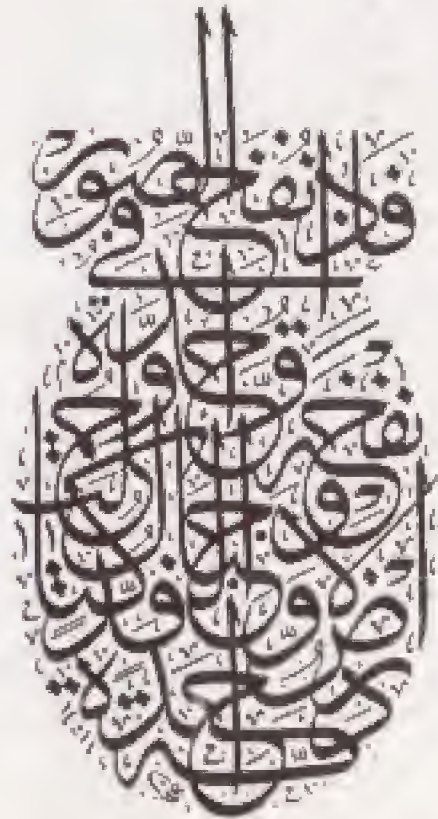 فإذا نفخ في الصور
نفخة واحدة
وحملت الأرض والجبال فدكتا
دكة واحدة